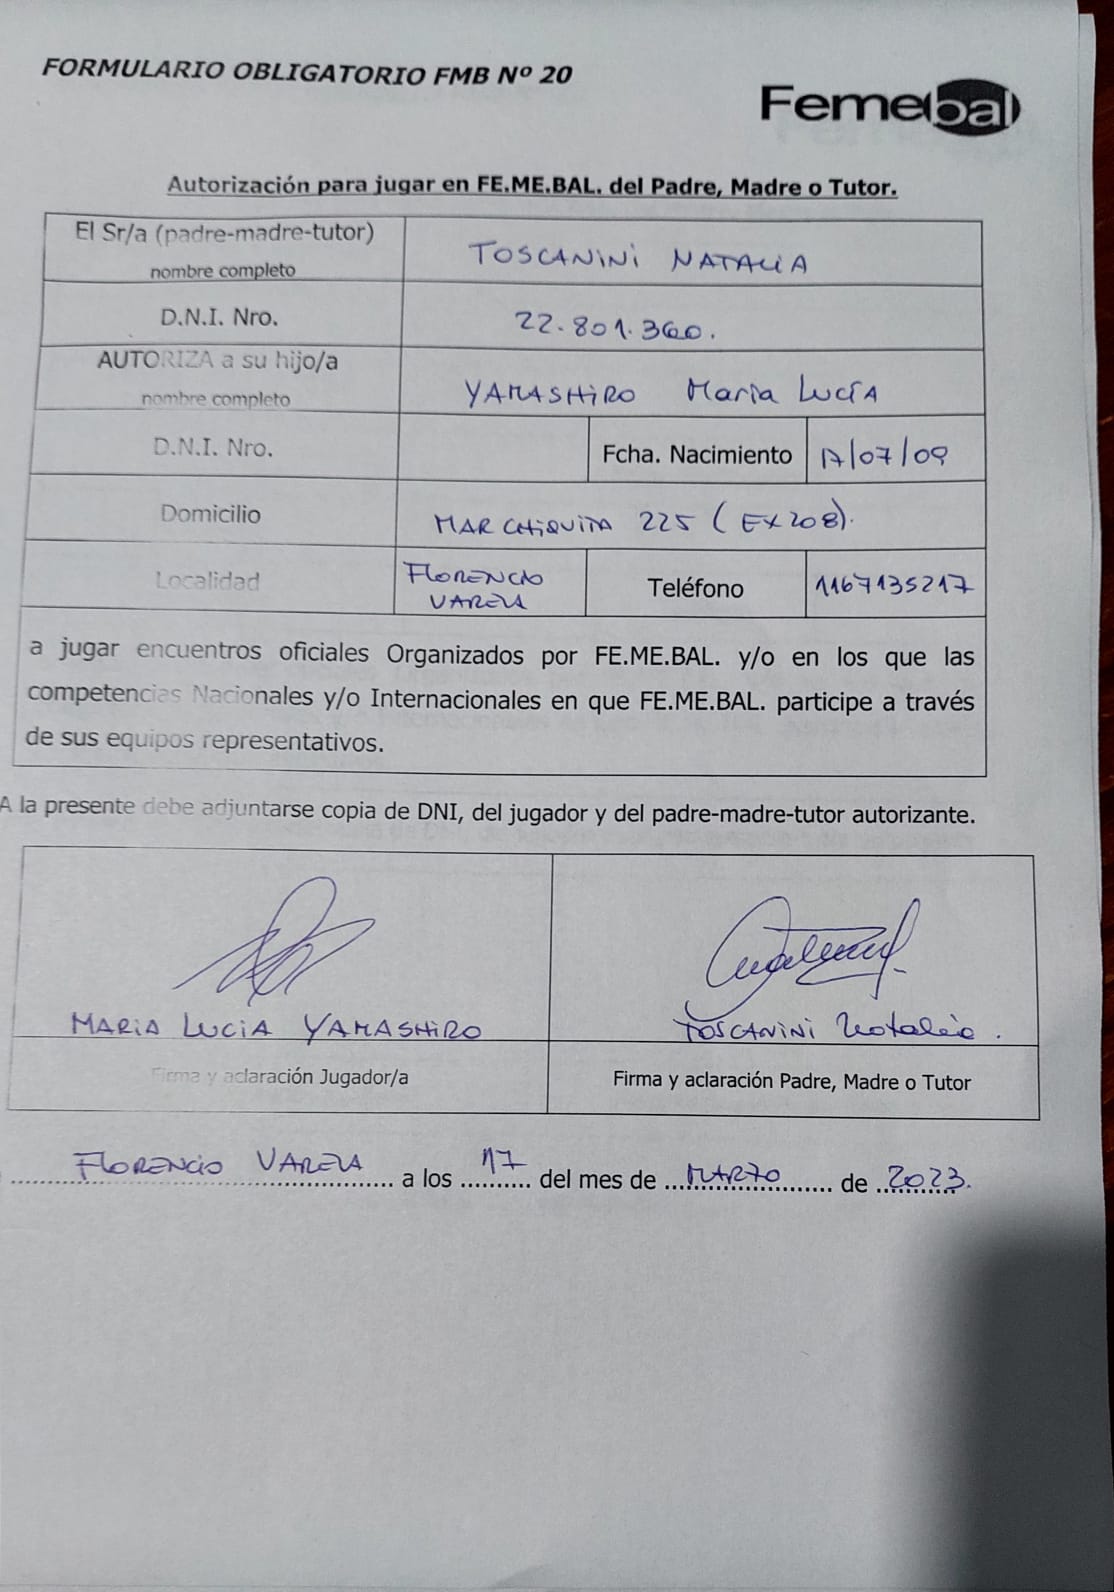 FORMULARIO OBLIGATORIO FMB Nº 20
Femebal
Autorización para jugar en FE.ME.BAL. del Padre, Madre o Tutor.
El Sr/a (padre-madre-tutor)
nombre completo
TOSCANINI NATALIA
D.N.I. Nro.
22.801.360.
AUTORIZA a su hijo/a
nombre completo
YAMASHIRO Maria Lucía
D.N.I. Nro.
Fcha. Nacimiento
17/07/09
Domicilio
MAR CHIQUITA 225 (EX 208).
Localidad
FLORENCIO
VARELA
Teléfono
1167135217
a jugar encuentros oficiales Organizados por FE.ME.BAL. y/o en los que las
competencias Nacionales y/o Internacionales en que FE.ME.BAL. participe a través
de sus equipos representativos.
A la presente debe adjuntarse copia de DNI, del jugador y del padre-madre-tutor autorizante.
MARIA LUCIA YAMASHIRO
TOSCANINI Natalia.
Firma y aclaración Jugador/a
Firma y aclaración Padre, Madre o Tutor
FLORENCIO VARELA a los 17 del mes de MARZO de 2023.